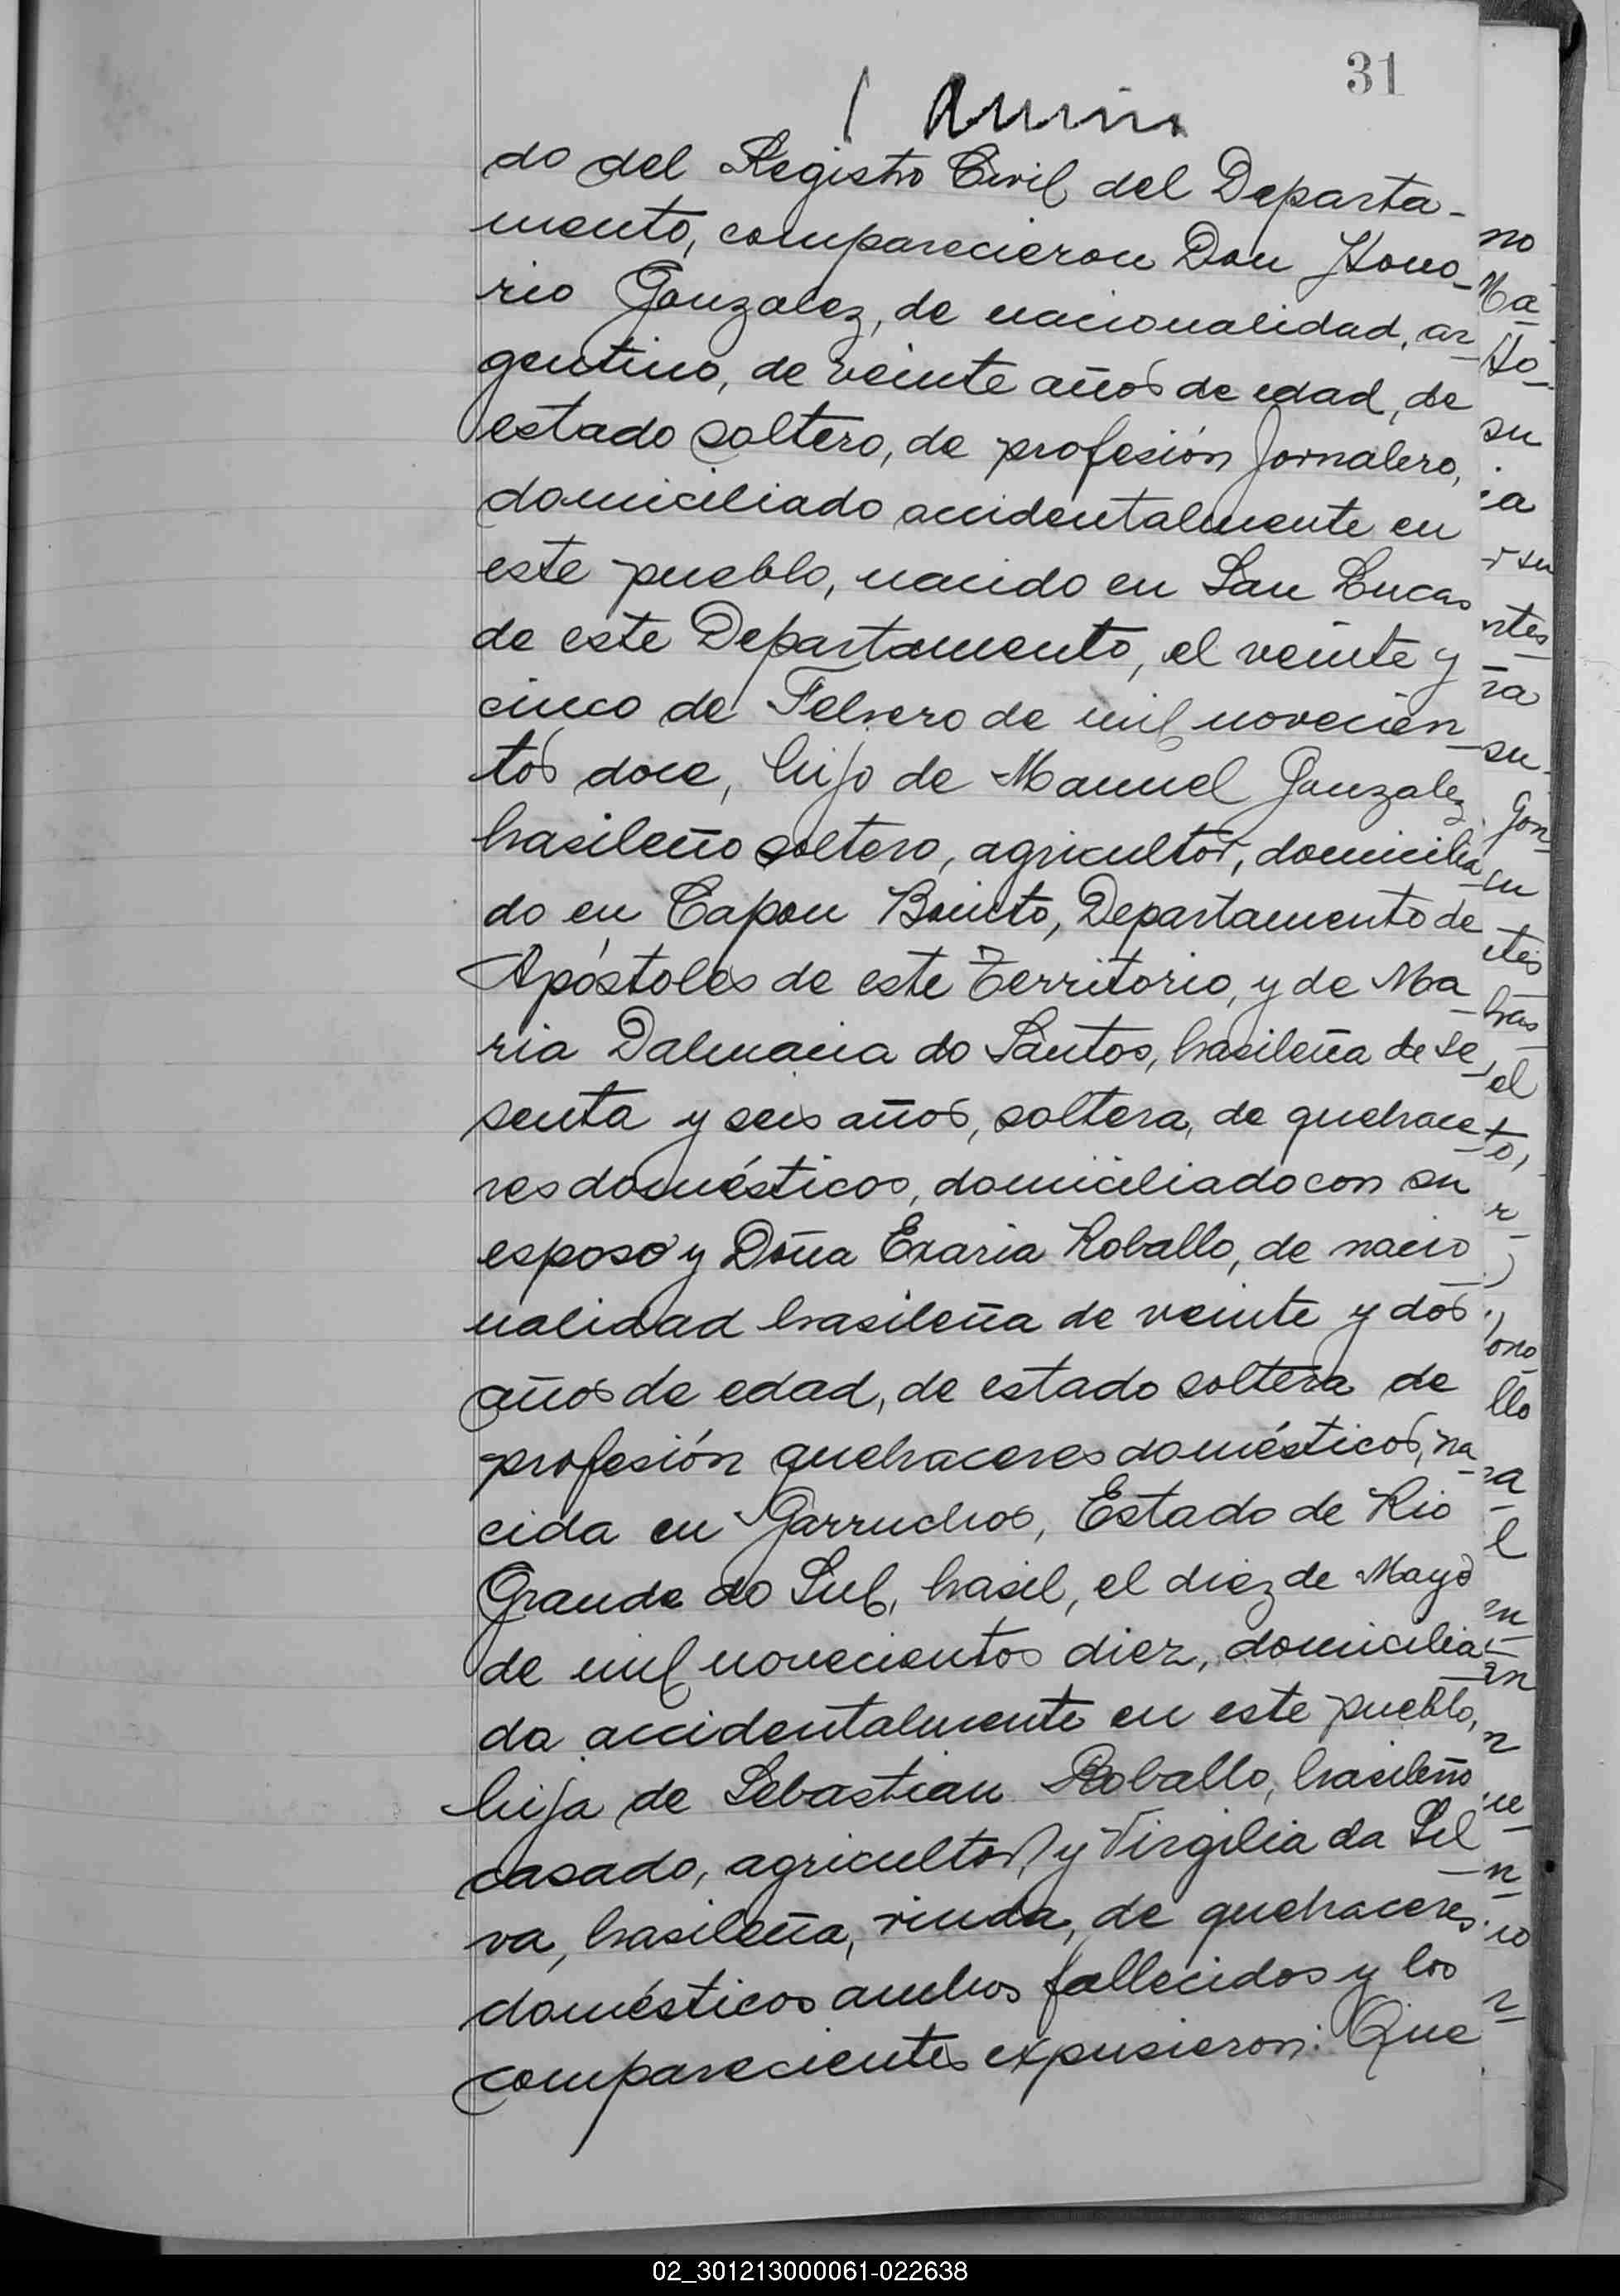 31
do del Registro Civil del Departa-
mento, comparecieron Don Hono-
rio Gonzalez, de nacionalidad, ar-
gentino, de veinte años de edad, de
estado soltero, de profesión Jornalero,
domiciliado accidentalmente en
este pueblo, nacido en San Lucas
de este Departamento, el veinte y
cinco de Febrero de mil novecien-
tos doce, hijo de Manuel Gonzalez
brasileño soltero, agricultor, domicilia-
do en Capon Bonito, Departamento de
Apóstoles de este Territorio, y de Ma-
ria Dalmacia do Santos, brasileña de se-
senta y seis años, soltera, de quehace-
res domésticos, domiciliado con su
esposo y Doña Exaria Roballo, de nacio-
nalidad brasileña de veinte y dos
años de edad, de estado soltera de
profesión quehaceres domésticos, na-
cida en Garruchos, Estado de Rio
Grande do Sul, brasil, el diez de Mayo
de mil novecientos diez, domicilia-
da accidentalmente en este pueblo,
hija de Sebastian Roballo, brasileño
casado, agricultor, y Virgilia da Sil-
va, brasileña, viuda, de quehaceres
domésticos ambos fallecidos y los
comparecientes expusieron: Que
no
Ma-
Ho-
su
ia
su
ntes
ra
su
Gon-
en
tes
bras-
el
to,
r-
ono-
llo
ra
l
en
n
ue-
n-
io
r-
02_301213000061-022638